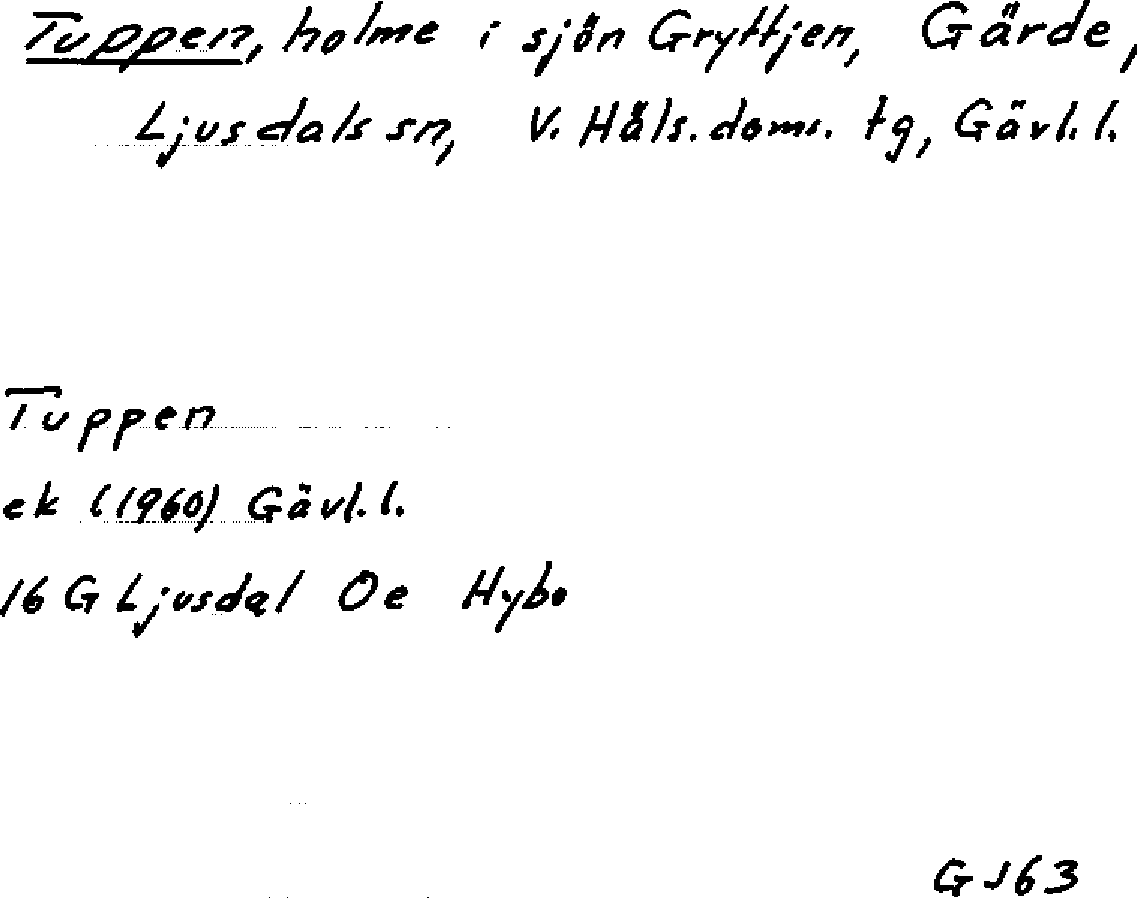 Tuppen, holme i sjön Gryttjen, Gärde,
Ljusdals sn, V. Häls. doms. tg, Gävl. l.
Tuppen
ek (1960) Gävl. l.
16 G Ljusdal Oe Hybo
GJ63